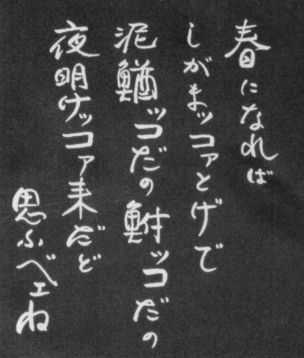 春になれば
しがまッコァとげで
泥鰌ッコだの鮒ッコだの
夜明けッコァ来だど
思ふベェね